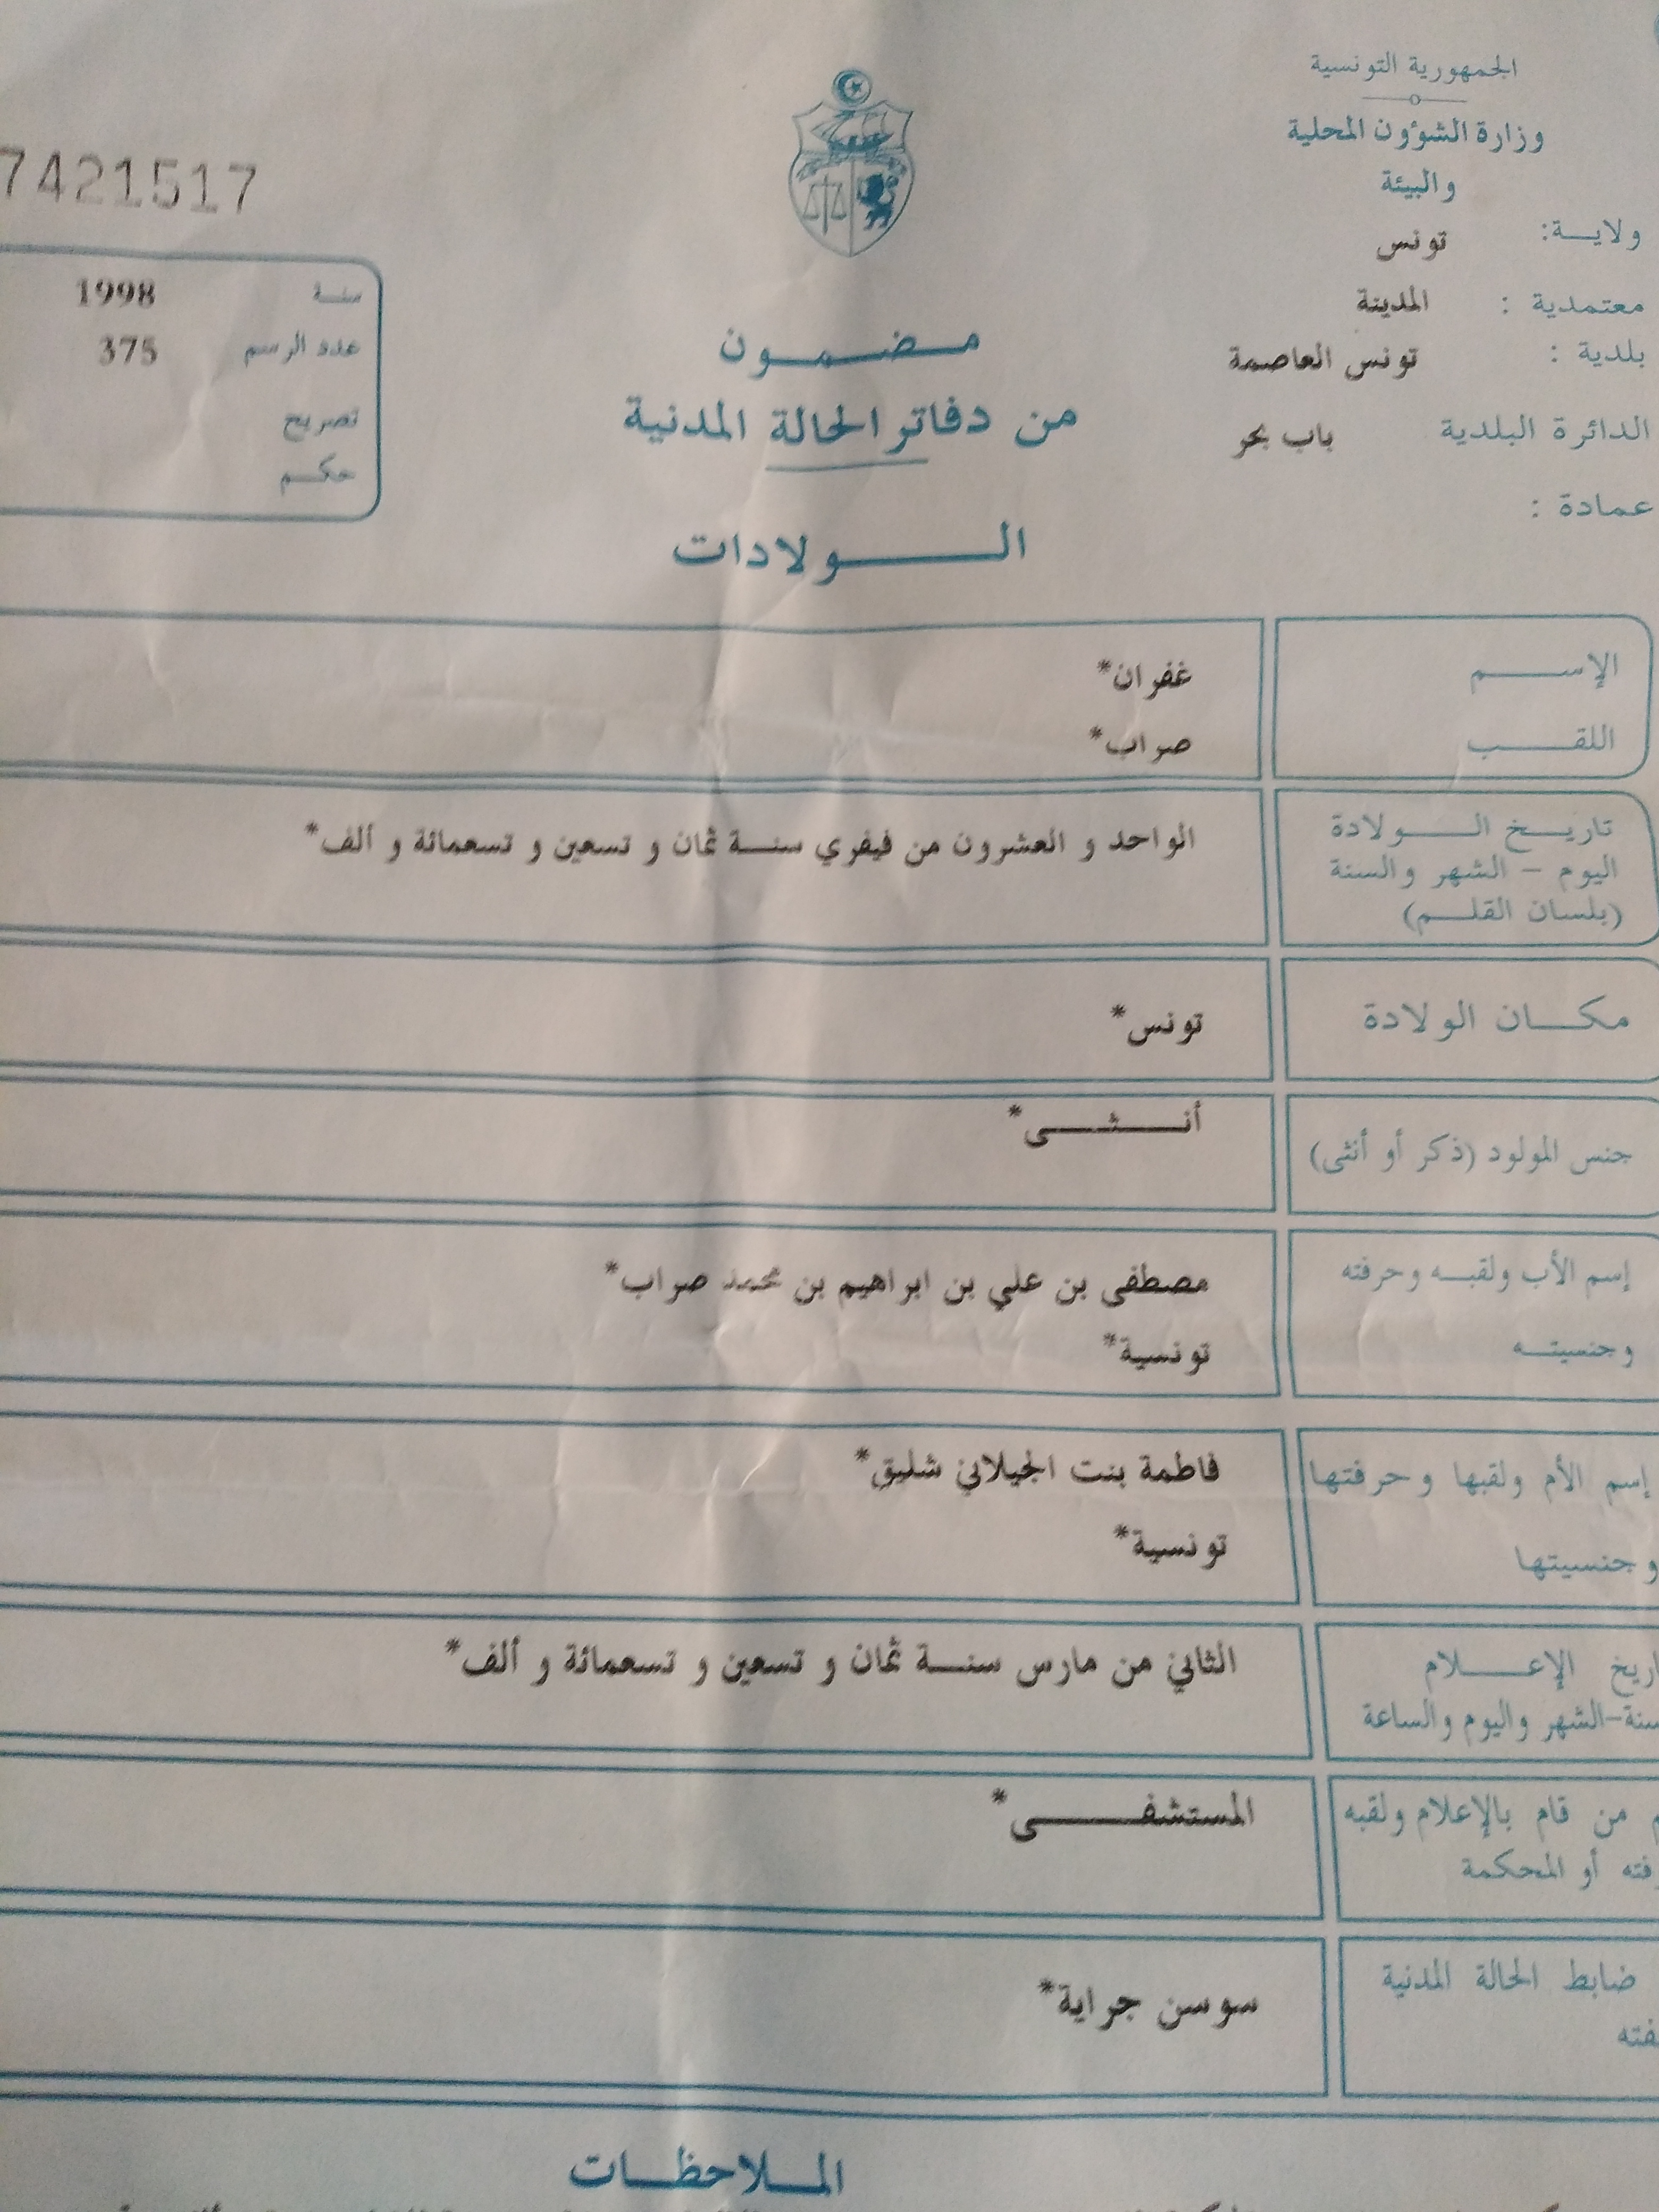 الجمهورية التونسية
وزارة الشؤون المحلية
والبيئة
ولاية: تونس
معتمدية : المدينة
بلدية : تونس العاصمة
الدائرة البلدية باب بحر
عمادة :
7421517
سنة 1998
عدد الرسم 375
تصريح
حكم
مضمون
من دفاتر الحالة المدنية
الولادات
الإسم غفران*
اللقب صراب*
تاريخ الولادة
اليوم - الشهر والسنة
(بلسان القلم)
الواحد و العشرون من فيفري سنة ثمان و تسعين و تسعمائة و ألف*
مكان الولادة تونس*
جنس المولود (ذكر أو أنثى) أنثى*
إسم الأب ولقبه وحرفته مصطفى بن علي بن ابراهيم بن محمد صراب*
وجنسيته تونسية*
إسم الأم ولقبها وحرفتها فاطمة بنت الجيلاني شليق*
وجنسيتها تونسية*
الإعلام
الشهر واليوم والساعة
الثاني من مارس سنة ثمان و تسعين و تسعمائة و ألف*
من قام بالإعلام ولقبه
أو المحكمة
المستشفى*
ضابط الحالة المدنية
سوسن جراية*
الملاحظات